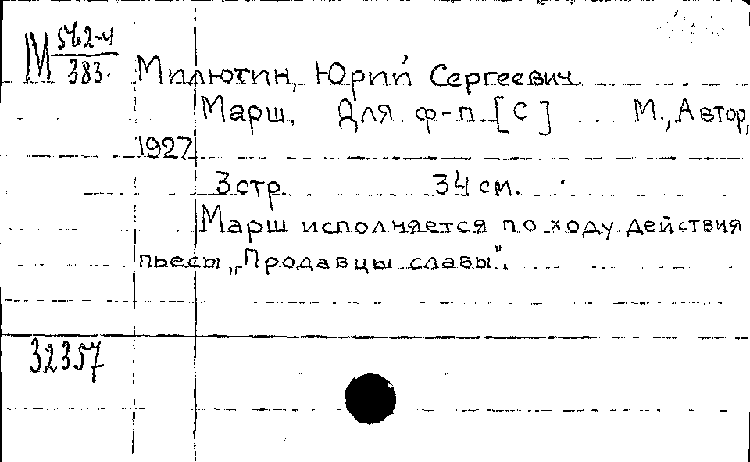 М 562-4/383.
Милютин, Юрий Сергеевич
Марш. Для ф-п [С] М., Автор,
1927
3 стр. 34 см.
Марш исполняется по ходу действия
пьесы „Продавцы славы".
32357